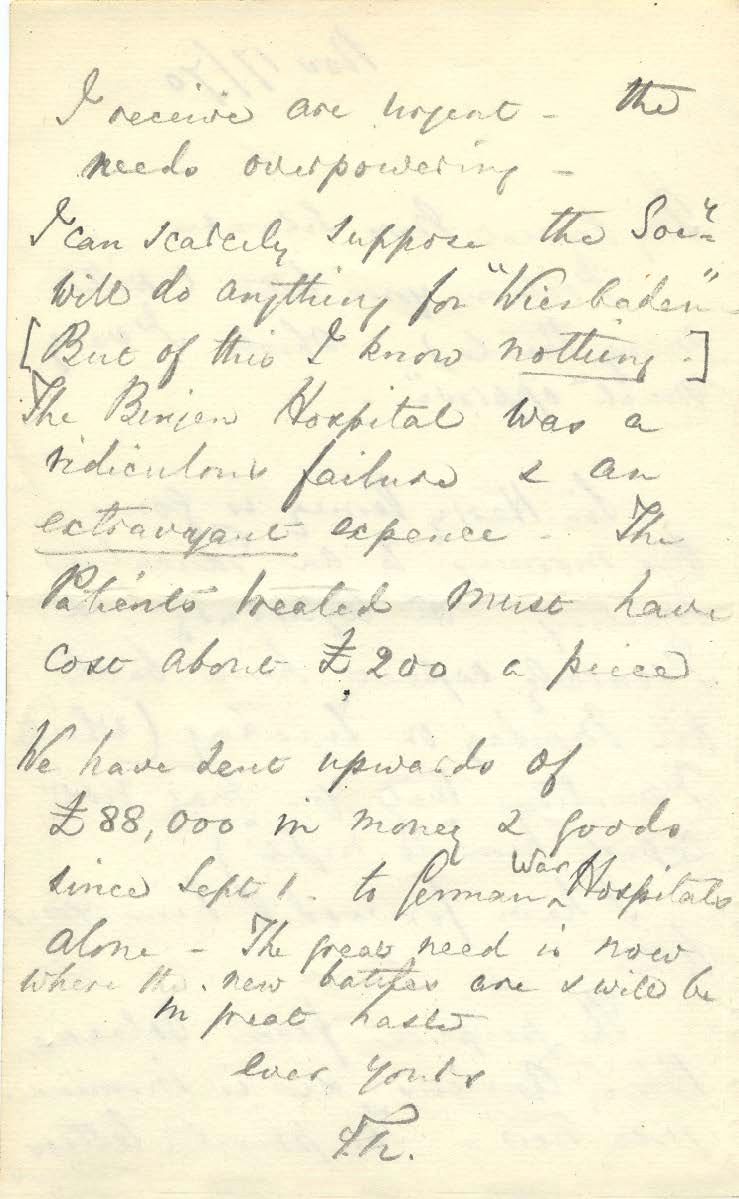 I receive are urgent - the
needs overpowering -
I can scarcely suppose the Soc:y
will do anything for "Wiesbaden" -
[But of this I know nothing.]
The Bingen Hospital was a
ridiculous failure & an
extravagant expence - The
Patients treated must have
cost about £200 a piece
We have sent upwards of
£88,000 in money & goods
since Sept 1. to German War Hospitals
alone - The great need is now
where the new battles are & will be
in great haste
ever yours